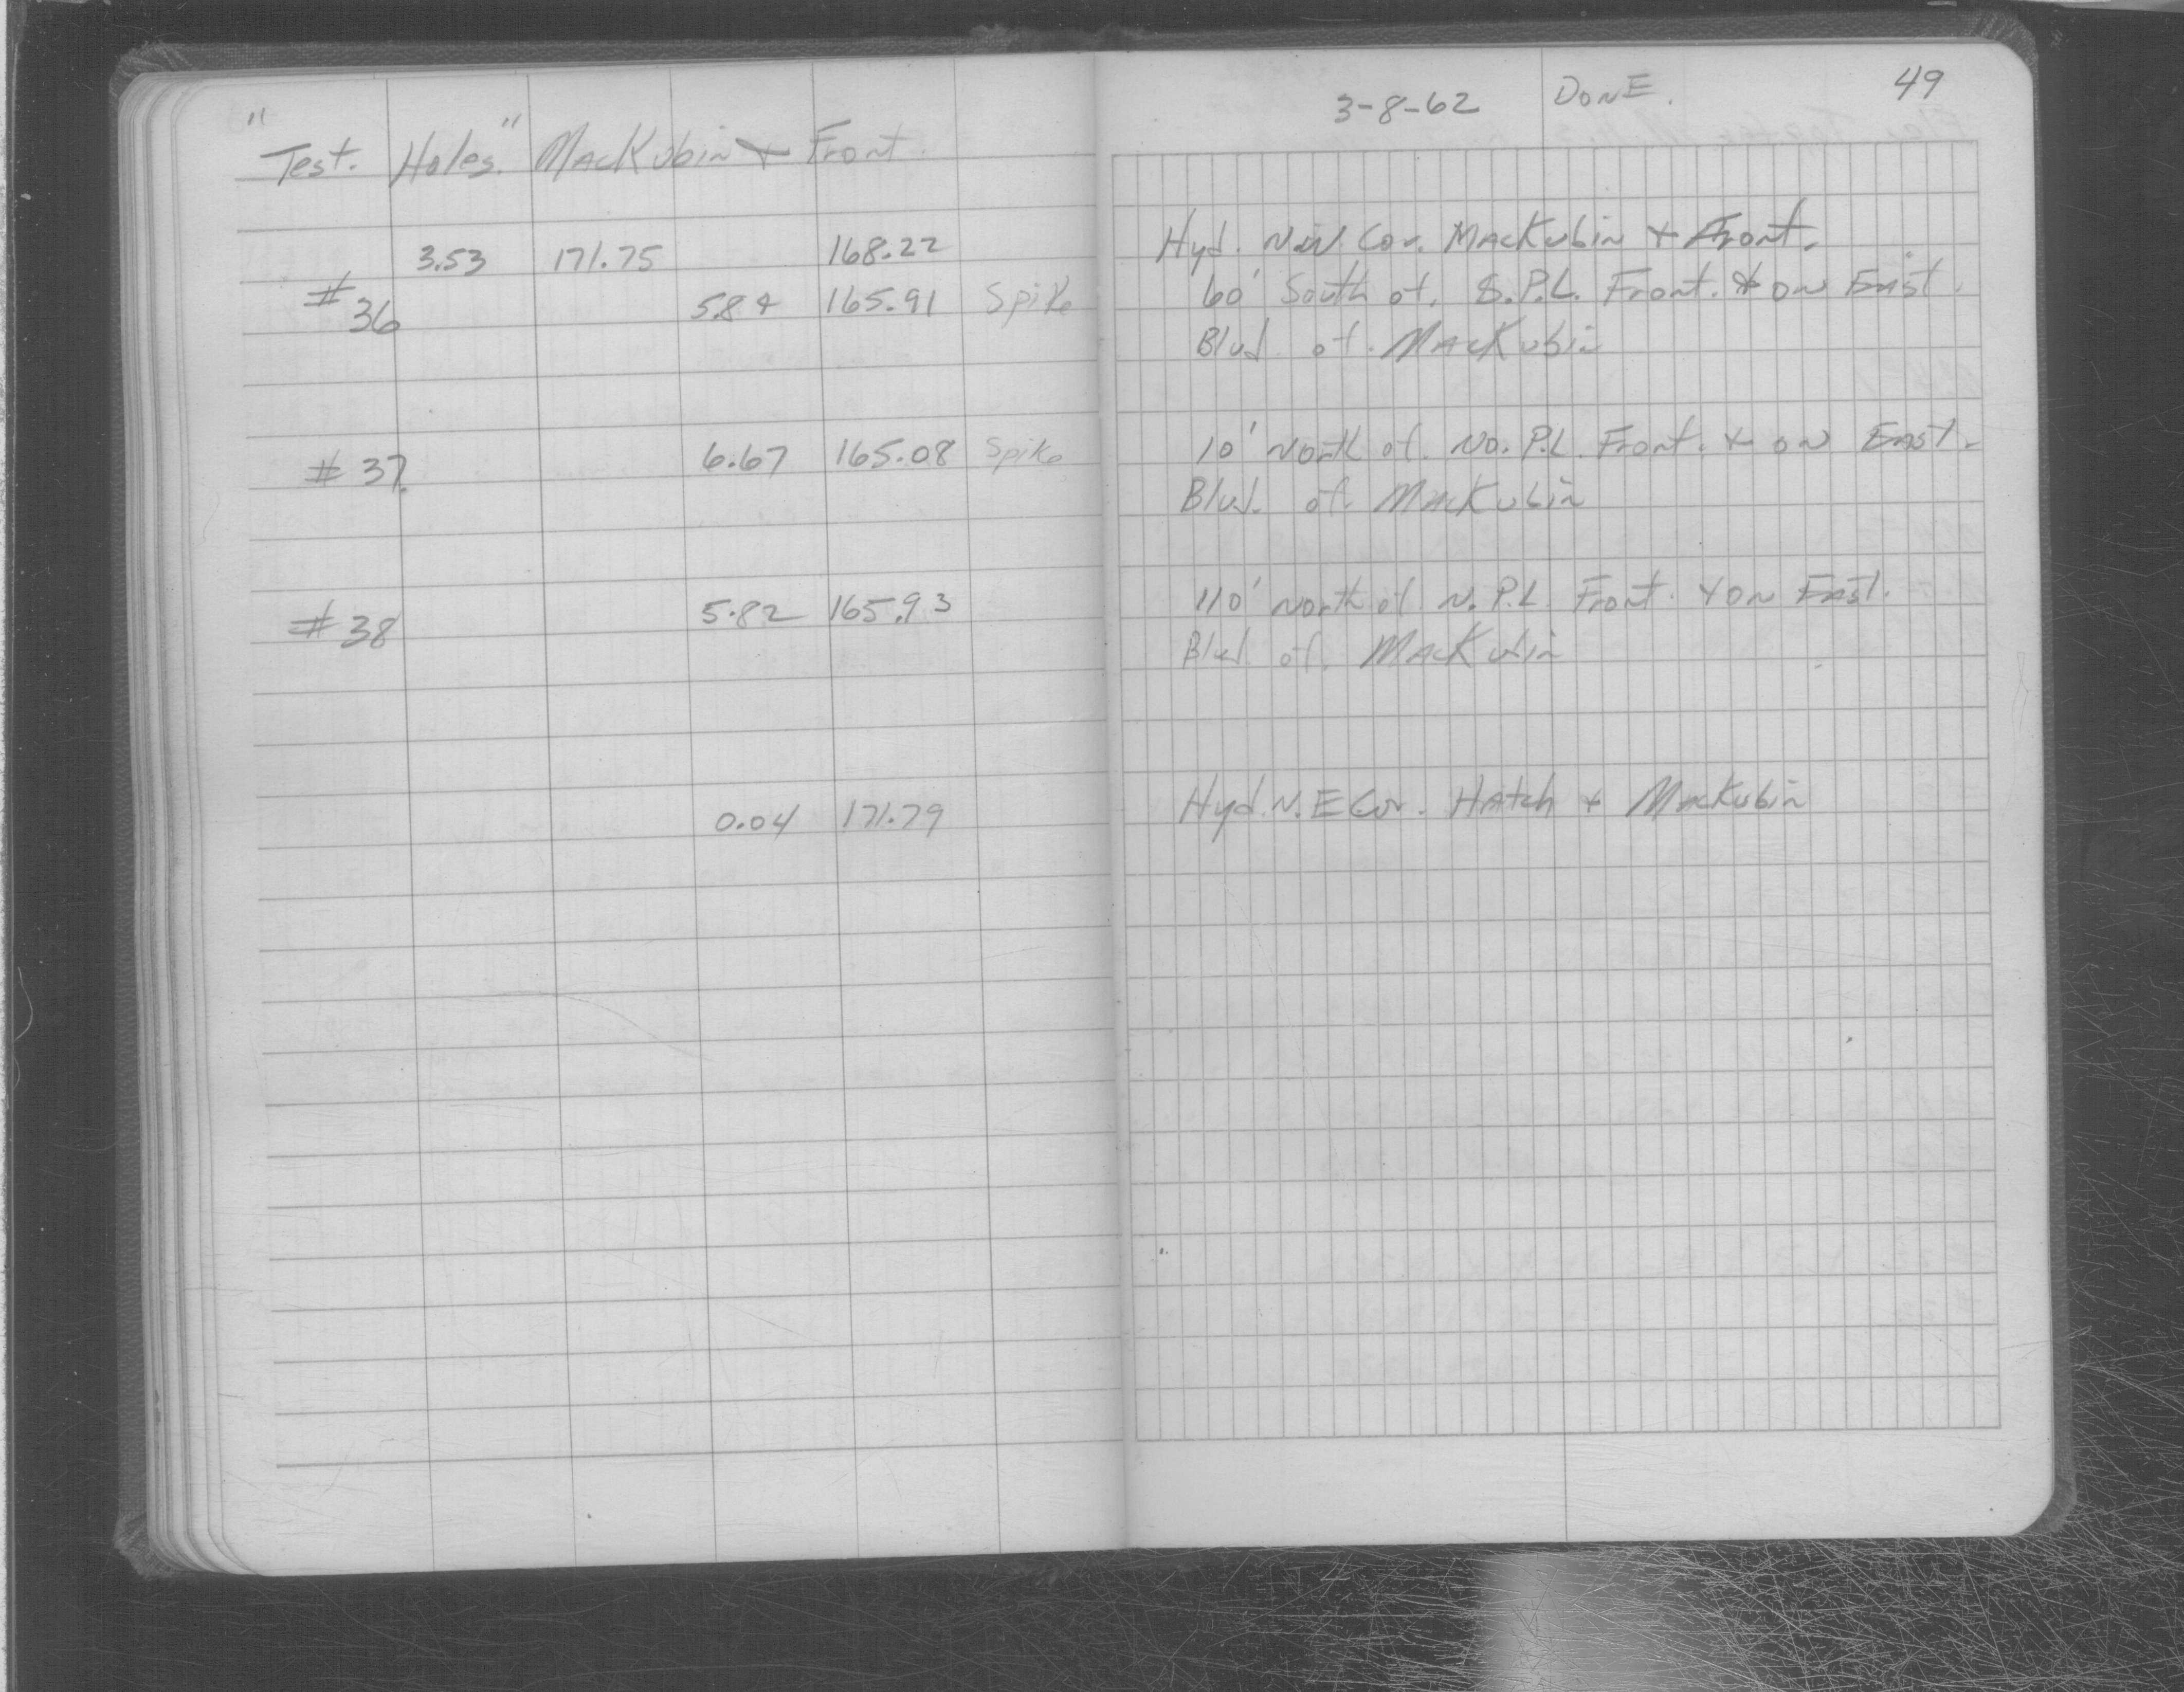 3-8-62 DONE. 49
"Test. Holes." MacKubin + Front.
3.53 171.75 168.22 Hyd. N.W. Cor. MacKubin + Front.
#36 5.84 165.91 Spike 60' South of. S.P.L. Front. + on East.
Blvd. of. MacKubin
#37. 6.67 165.08 Spike 10' North of. No. P.L. Front. + on East.
Blvd. of. MacKubin
#38 5.82 165.93 110' North of N. P.L. Front. + on East.
Blvd. of. MacKubin
0.04 171.79 Hyd. N.E Cor. Hatch + MacKubin